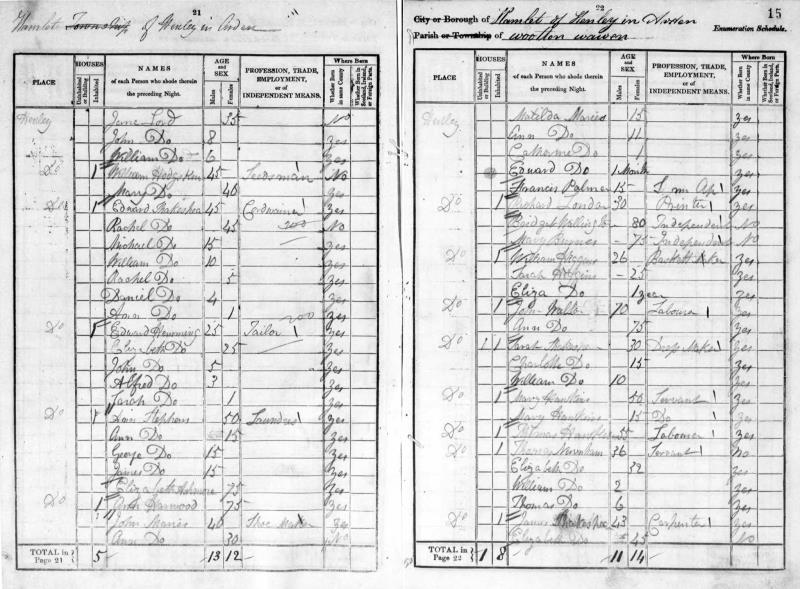 21
Hamlet Township of Henley in Arden
PLACE
HOUSES
Uninhabited or Building
Inhabited
NAMES
of each Person who abode therein the preceding Night.
AGE and SEX
Males
Females
PROFESSION, TRADE, EMPLOYMENT, or of INDEPENDENT MEANS.
Where Born
Whether Born in same County
Whether Born in Scotland, Ireland, or Foreign Parts.
Henley Jane Lord 35 No
John Do 8 yes
William Do 6 yes
Do 1 William 45 Seedsman No
Mary Do 40 yes
Do 1 Edward 45 Cordwainer yes
Rachel Do 45 No
Michael Do 15 yes
William Do 10 yes
Rachel Do 5 yes
Daniel Do 4 yes
Ann Do 1 yes
Do 1 Edward Hemming 25 Tailor yes
Elizabeth Do 25 yes
John Do 5 yes
Alfred Do 3 yes
Sarah Do 1 yes
Do 1 Stephens 50 yes
Ann Do 15 yes
George Do 15 yes
James Do 15 yes
Elizabeth 75 yes
Do 1 Harwood 75 yes
John Maries 40 Shoe Maker yes
Ann Do 30 No
TOTAL in Page 21 5 13 12
22
15
City or Borough of Hamlet of Henley in Arden
Enumeration Schedule.
Parish or Township of wootton wawen
PLACE
HOUSES
Uninhabited or Building
Inhabited
NAMES
of each Person who abode therein the preceding Night.
AGE and SEX
Males
Females
PROFESSION, TRADE, EMPLOYMENT, or of INDEPENDENT MEANS.
Where Born
Whether Born in same County
Whether Born in Scotland, Ireland, or Foreign Parts.
Henley Matilda Maries 15 yes
Ann Do 11 yes
Catherine Do 1 yes
Edward Do 1 Month yes
Francis Palmer 15 yes
Do 1 Richard London 30 Printer yes
Bridget 80 Independent No
Mary 75 Independent No
Do 1 William 26 yes
Sarah 25
Eliza Do 1 year yes
Do 1 John 70 Labourer yes
Ann Do 75 yes
Do 1 1 Sarah 30 yes
Charlotte Do 15 yes
William Do 10 yes
Do 1 Mary Hawkins 50 Servant yes
Mary Hawkins 15 Do yes
Do 1 Thomas 55 Labourer yes
Do 1 Thomas 36 Servant No
Elizabeth Do 32 yes
William Do 2 yes
Thomas Do 6 yes
Do 1 James 43 Carpenter yes
Elizabeth Do 45 No
TOTAL in Page 22 1 8 11 14